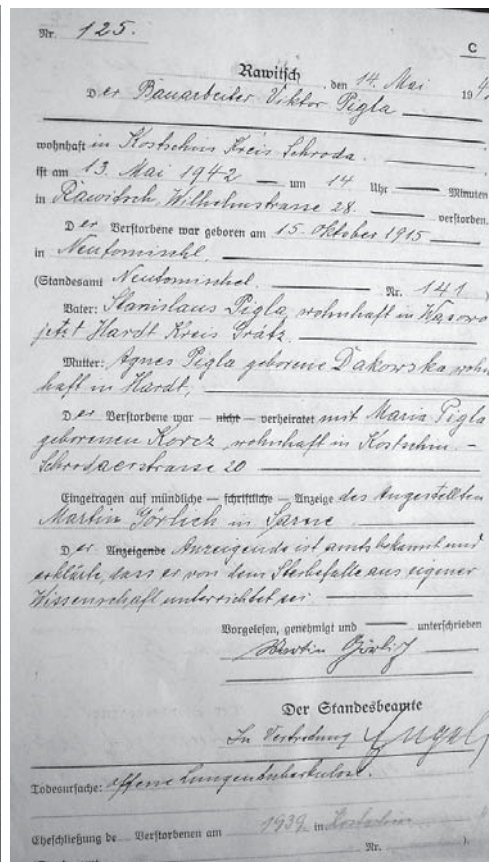 Nr. 125.
C
Rawitsch, den 14. Mai 194
Der Bauarbeiter Viktor Pigla
wohnhaft in Kostschin Kreis Schroda.
ist am 13. Mai 1942 um 14 Uhr Minuten
in Rawitsch, Wilhelmstrasse 28. verstorben.
Der Verstorbene war geboren am 15. Oktober 1915
in Neutomischl.
(Standesamt Neutomischel. Nr. 141)
Vater: Stanislaus Pigla, wohnhaft in Wąsowo
jetzt Hardt Kreis Grätz.
Mutter: Agnes Pigla geborene Dakowska wohn
haft in Hardt,
Der Verstorbene war – nicht – verheiratet mit Maria Pigla
geborenen Korcz, wohnhaft in Kostschin. –
Schrodaerstrasse 20
Eingetragen auf mündliche – schriftliche – Anzeige des Angestellten
Martin Görlich in Sarne
Der Anzeigende Anzeigende ist amtsbekannt und
erklärte, dass er von dem Sterbefalle aus eigener
Wissenschaft unterrichtet sei.
Vorgelesen, genehmigt und unterschrieben
Martin Görlich
Der Standesbeamte
In Vertretung Engel
Todesursache: offene Lungentuberkulose.
Eheschließung de Verstorbenen am 1939 in Kostschin
Nr. ).